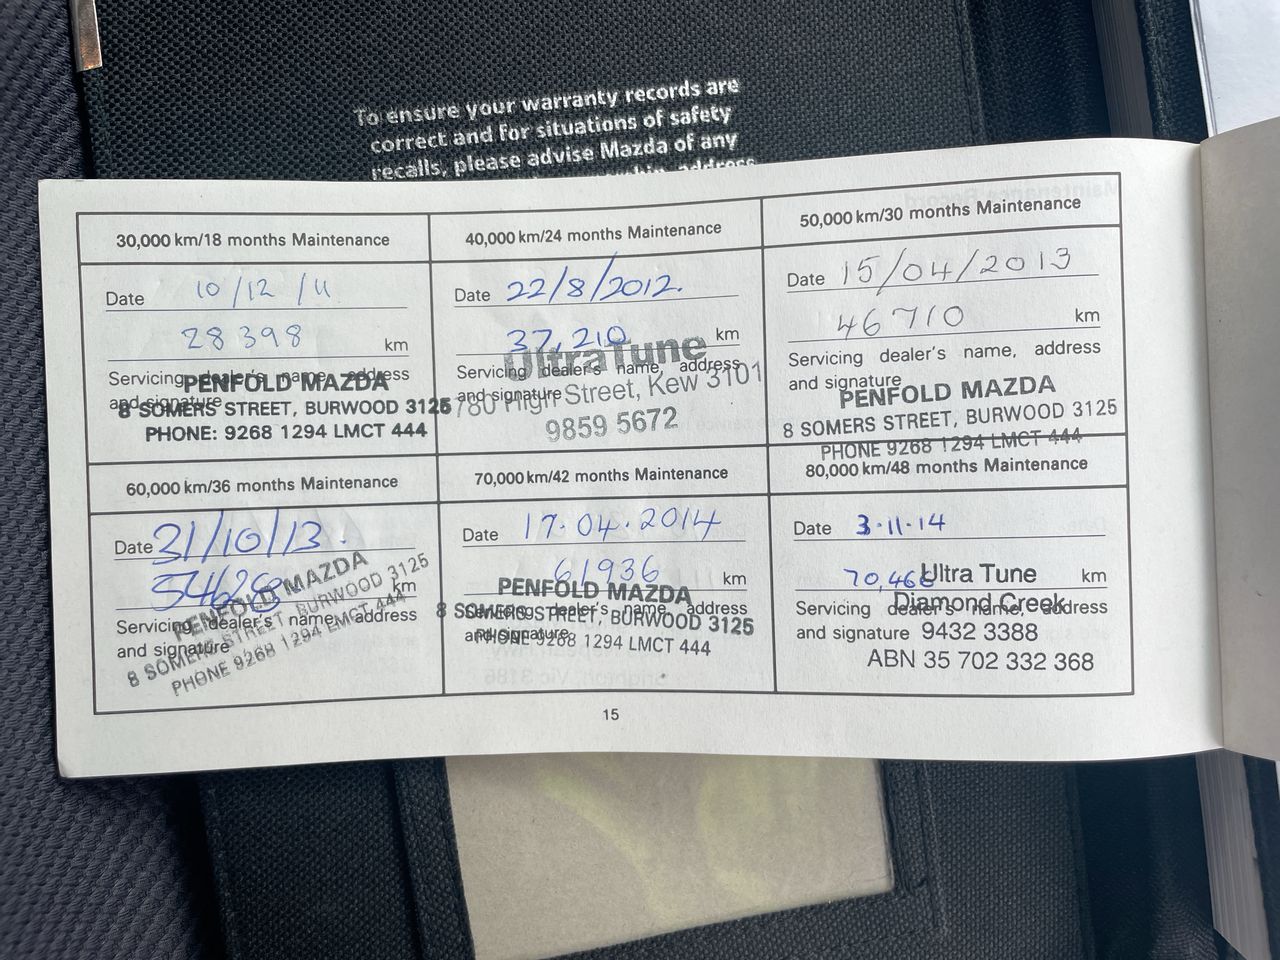 To ensure your warranty records are
correct and for situations of safety
recalls, please advise Mazda of any
address
30,000 km/18 months Maintenance
Date 10/12/11
28398 km
Servicing dealer's name, address
and signature
PENFOLD MAZDA
8 SOMERS STREET, BURWOOD 3125
PHONE: 9268 1294 LMCT 444
40,000 km/24 months Maintenance
Date 22/8/2012.
37,210 km
Servicing dealer's name, address
and signature
UltraTune
780 High Street, Kew 3101
9859 5672
50,000 km/30 months Maintenance
Date 15/04/2013
46710 km
Servicing dealer's name, address
and signature
PENFOLD MAZDA
8 SOMERS STREET, BURWOOD 3125
PHONE 9268 1294 LMCT 444
60,000 km/36 months Maintenance
Date 31/10/13.
km
Servicing dealer's name, address
and signature
PENFOLD MAZDA
8 SOMERS STREET, BURWOOD 3125
PHONE 9268 1294 LMCT 444
70,000 km/42 months Maintenance
Date 17.04.2014
61936 km
Servicing dealer's name, address
and signature
PENFOLD MAZDA
8 SOMERS STREET, BURWOOD 3125
PHONE 9268 1294 LMCT 444
80,000 km/48 months Maintenance
Date 3.11.14
70,466 km
Servicing dealer's name, address
and signature
Ultra Tune
Diamond Creek
9432 3388
ABN 35 702 332 368
15